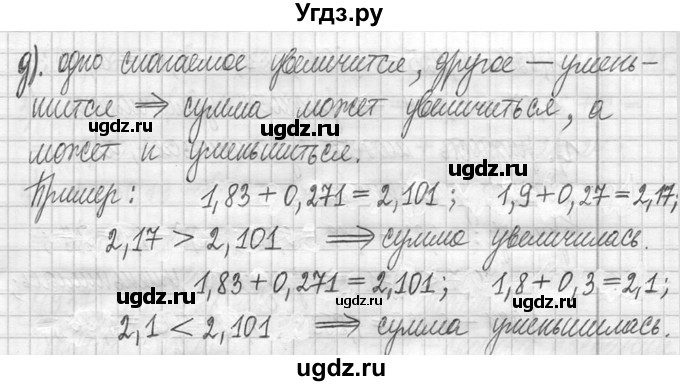 Угдз.ру
д). одно слагаемое увеличится, другое — умень-
шится ⇒ сумма может увеличиться, а
gdz.ru ugdz.ru
может и уменьшиться.
ugdz.ru
Пример: 1,83 + 0,271 = 2,101 ; 1,9 + 0,27 = 2,17;
ugdz.ru
2,17 > 2,101 ⇒ сумма увеличилась.
ugdz.ru
1,83 + 0,271 = 2,101 ; 1,8 + 0,3 = 2,1 ;
ugdz.ru ugdz.ru ugdz.ru
2,1 < 2,101 ⇒ сумма уменьшилась.
ugdz.ru ugdz.ru
ugdz.ru